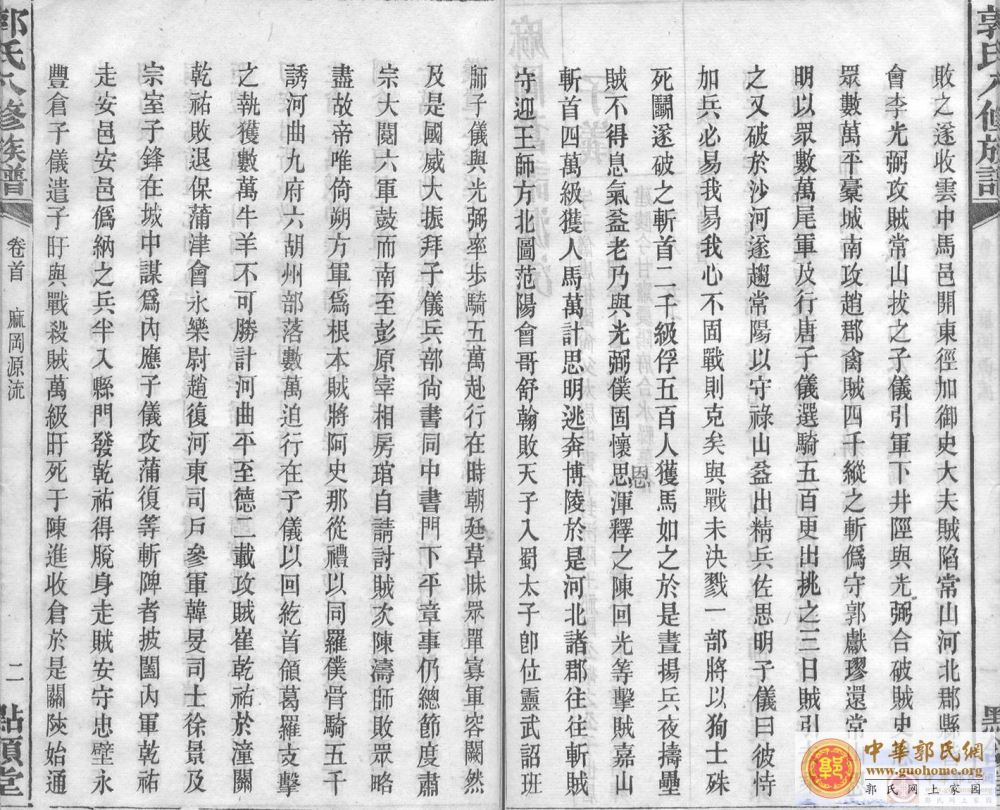 郭氏八修族譜
敗之遂收雲中馬邑開東徑加御史大夫賊陷常山河北郡縣
會李光弼攻賊常山拔之子儀引軍下井陘與光弼合破賊史
眾數萬平稾城南攻趙郡禽賊四千縱之斬僞守郭獻璆還常
明以眾數萬尾軍及行唐子儀選騎五百更出挑之三日賊引
之又破於沙河遂趨常陽以守祿山益出精兵佐思明子儀曰彼恃
加兵必易我易我心不固戰則克矣與戰未決戮一部將以狥士硃
死鬭遂破之斬首二千級俘五百人獲馬如之於是晝揚兵夜擣壘
賊不得息氣益老乃與光弼僕固懷思渾釋之陳回光等擊賊嘉山
恩
斬首四萬級獲人馬萬計思明逃奔博陵於是河北諸郡往往斬賊
守迎王師方北圖范陽會哥舒翰敗天子入蜀太子卽位靈武詔班
師子儀與光弼率步騎五萬赴行在時朝廷草昧眾單寡軍容闕然
及是國威大振拜子儀兵部尙書同中書門下平章事仍總節度肅
宗大閱六軍鼓而南至彭原宰相房琯自請討賊次陳濤師敗眾略
盡故帝唯倚朔方軍爲根本賊將阿史那從禮以同羅僕骨騎五千
誘河曲九府六胡州部落數萬迫行在子儀以回紇首領葛羅支擊
之執獲數萬牛羊不可勝計河曲平至德二載攻賊崔乾祐於潼關
乾祐敗退保蒲津會永樂尉趙復河東司戶參軍韓旻司士徐景及
宗室子鋒在城中謀爲內應子儀攻蒲復等斬陴者披闔內軍乾祐
走安邑安邑僞納之兵半入縣門發乾祐得脫身走賊安守忠壁永
豐倉子儀遣子旰與戰殺賊萬級旰死于陳進收倉於是關陝始通
郭氏八修族譜
卷首 麻岡源流
二
點頭堂
中華郭氏網
www.guohome.org
郭氏网上家园